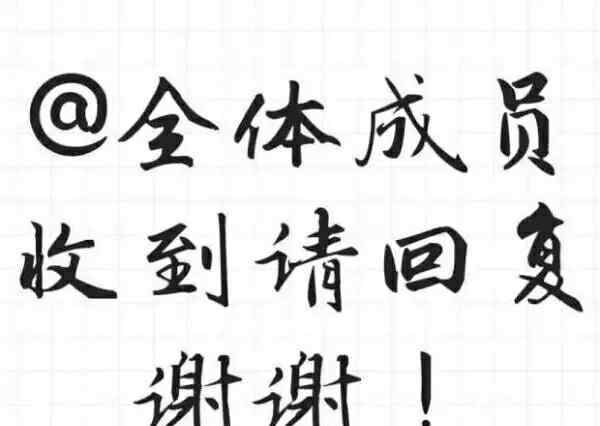 @全体成员
收到请回复
谢谢！